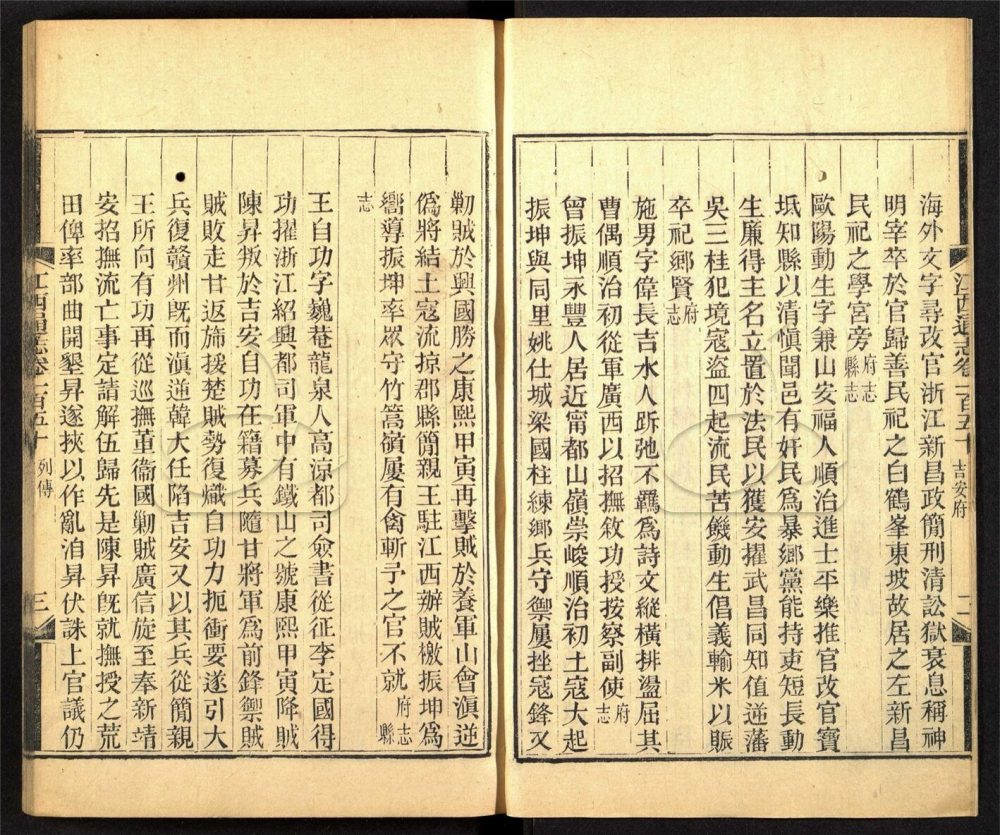 海外文字尋改官浙江新昌政簡刑清訟獄衰息稱神
明宰卒於官歸善民祀之白鶴峯東坡故居之左新昌
民祀之學宮旁府志縣志
歐陽動生字兼山安福人順治進士平樂推官改官寶
坻知縣以清愼聞邑有奸民爲暴鄉黨能持吏短長動
生廉得主名立置於法民以獲安擢武昌同知值逆藩
吳三桂犯境寇盜四起流民苦饑動生倡義輸米以賑
卒祀鄉賢府志
施男字偉長吉水人跅弛不羈爲詩文縱橫排盪屈其
曹偶順治初從軍廣西以招撫敘功授按察副使府志
曾振坤永豐人居近甯都山嶺崇峻順治初土寇大起
振坤與同里姚仕城梁國柱練鄉兵守禦屢挫寇鋒又
江西通志卷一百五十 吉安府 二
勦賊於興國勝之康熙甲寅再擊賊於養軍山會滇逆
僞將結土寇流掠郡縣簡親王駐江西辦賊檄振坤爲
嚮導振坤率眾守竹篙嶺屢有禽斬予之官不就府志縣
志
王自功字巍菴龍泉人高涼都司僉書從征李定國得
功擢浙江紹興都司軍中有鐵山之號康熙甲寅降賊
陳昇叛於吉安自功在籍募兵隨甘將軍爲前鋒禦賊
賊敗走甘返旆援楚賊勢復熾自功力扼衝要遂引大
兵復贛州旣而滇逆韓大任陷吉安又以其兵從簡親
王所向有功再從巡撫董衞國勦賊廣信旋至奉新靖
安招撫流亡事定請解伍歸先是陳昇旣就撫授之荒
田俾率部曲開墾昇遂挾以作亂洎昇伏誅上官議仍
江西通志卷一百五十 列傳 三